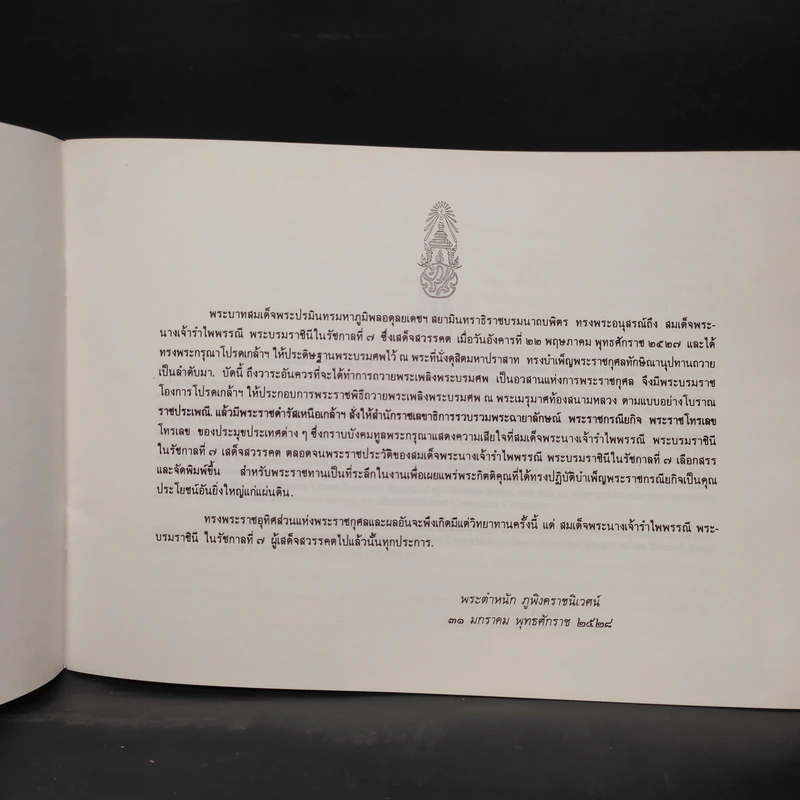 พระบาทสมเด็จพระปรมินทรมหาภูมิพลอดุลยเดชฯ สยามินทราธิราชบรมนาถบพิตร ทรงพระอนุสรณ์ถึง สมเด็จพระ-
นางเจ้ารำไพพรรณี พระบรมราชินีในรัชกาลที่ ๗ ซึ่งเสด็จสวรรคต เมื่อวันอังคารที่ ๒๒ พฤษภาคม พุทธศักราช ๒๕๒๗ และได้
ทรงพระกรุณาโปรดเกล้าฯ ให้ประดิษฐานพระบรมศพไว้ ณ พระที่นั่งดุสิตมหาปราสาท ทรงบำเพ็ญพระราชกุศลทักษิณานุปทานถวาย
เป็นลำดับมา. บัดนี้ ถึงวาระอันควรที่จะได้ทำการถวายพระเพลิงพระบรมศพ เป็นอวสานแห่งการพระราชกุศล จึงมีพระบรมราช
โองการโปรดเกล้าฯ ให้ประกอบการพระราชพิธีถวายพระเพลิงพระบรมศพ ณ พระเมรุมาศท้องสนามหลวง ตามแบบอย่างโบราณ
ราชประเพณี. แล้วมีพระราชดำรัสเหนือเกล้าฯ สั่งให้สำนักราชเลขาธิการรวบรวมพระฉายาลักษณ์ พระราชกรณียกิจ พระราชโทรเลข
โทรเลข ของประมุขประเทศต่าง ๆ ซึ่งกราบบังคมทูลพระกรุณาแสดงความเสียใจที่สมเด็จพระนางเจ้ารำไพพรรณี พระบรมราชินี
ในรัชกาลที่ ๗ เสด็จสวรรคต ตลอดจนพระราชประวัติของสมเด็จพระนางเจ้ารำไพพรรณี พระบรมราชินีในรัชกาลที่ ๗ เลือกสรร
และจัดพิมพ์ขึ้น สำหรับพระราชทานเป็นที่ระลึกในงานเพื่อเผยแพร่พระกิตติคุณที่ได้ทรงปฏิบัติบำเพ็ญพระราชกรณียกิจเป็นคุณ
ประโยชน์อันยิ่งใหญ่แก่แผ่นดิน.
ทรงพระราชอุทิศส่วนแห่งพระราชกุศลและผลอันจะพึงเกิดมีแต่วิทยาทานครั้งนี้ แด่ สมเด็จพระนางเจ้ารำไพพรรณี พระ-
บรมราชินี ในรัชกาลที่ ๗ ผู้เสด็จสวรรคตไปแล้วนั้นทุกประการ.
พระตำหนัก ภูพิงคราชนิเวศน์
๓๑ มกราคม พุทธศักราช ๒๕๒๘